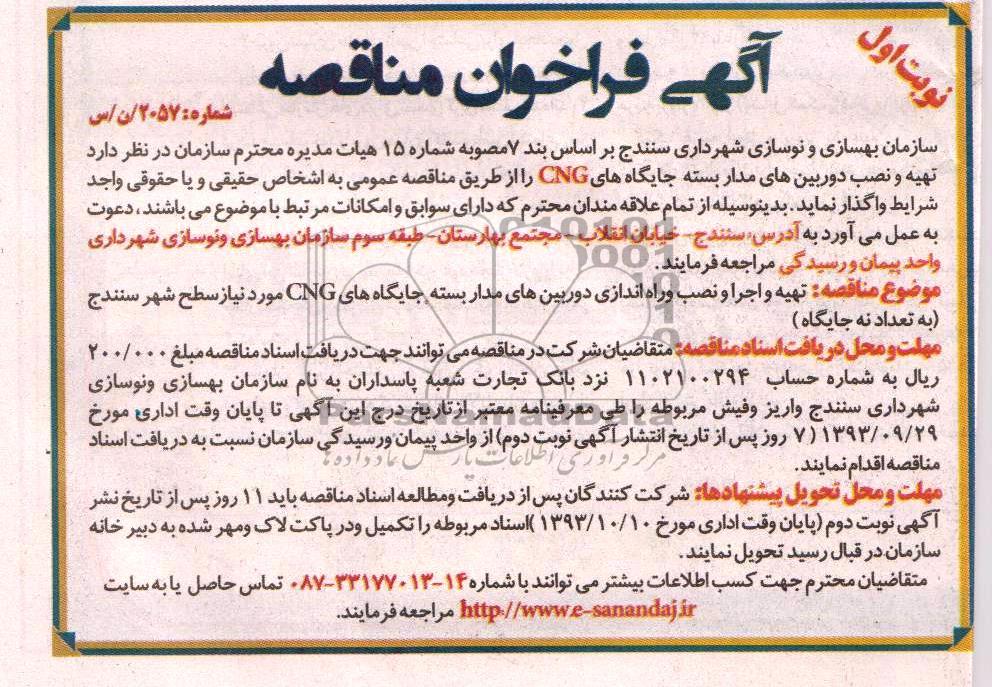 نوبت اول
آگهی فراخوان مناقصه
شماره: ۲۰۵۷/ن/س
سازمان بهسازی و نوسازی شهرداری سنندج بر اساس بند ۷مصوبه شماره ۱۵ هیات مدیره محترم سازمان در نظر دارد
تهیه و نصب دوربین های مدار بسته جایگاه های CNG را از طریق مناقصه عمومی به اشخاص حقیقی و یا حقوقی واجد
شرایط واگذار نماید. بدینوسیله از تمام علاقه مندان محترم که دارای سوابق و امکانات مرتبط با موضوع می باشند، دعوت
به عمل می آورد به آدرس: سنندج- خیابان انقلاب - مجتمع بهارستان- طبقه سوم سازمان بهسازی ونوسازی شهرداری
واحد پیمان و رسیدگی مراجعه فرمایند.
موضوع مناقصه: تهیه و اجرا و نصب وراه اندازی دوربین های مدار بسته جایگاه های CNG مورد نیاز سطح شهر سنندج
(به تعداد نه جایگاه)
مهلت و محل دریافت اسناد مناقصه: متقاضیان شرکت در مناقصه می توانند جهت دریافت اسناد مناقصه مبلغ ۲۰۰/۰۰۰
ریال به شماره حساب ۱۱۰۲۱۰۰۲۹۴ نزد بانک تجارت شعبه پاسداران به نام سازمان بهسازی ونوسازی
شهرداری سنندج واریز وفیش مربوطه را طی معرفینامه معتبر ازتاریخ درج این آگهی تا پایان وقت اداری مورخ
۱۳۹۳/۰۹/۲۹ (۷ روز پس از تاریخ انتشار آگهی نوبت دوم) از واحد پیمان ورسیدگی سازمان نسبت به دریافت اسناد
مناقصه اقدام نمایند.
مهلت و محل تحویل پیشنهادها: شرکت کنندگان پس از دریافت ومطالعه اسناد مناقصه باید ۱۱ روز پس از تاریخ نشر
آگهی نوبت دوم (پایان وقت اداری مورخ ۱۳۹۳/۱۰/۱۰)اسناد مربوطه را تکمیل ودر پاکت لاک ومهر شده به دبیر خانه
سازمان در قبال رسید تحویل نمایند.
متقاضیان محترم جهت کسب اطلاعات بیشتر می توانند با شماره ۱۴-۰۸۷-۳۳۱۷۷۰۱۳ تماس حاصل یا به سایت
http://www.e-sanandaj.ir مراجعه فرمایند.
ParsNamadData
مرکز فرآوری اطلاعات پارس نماد داده ها